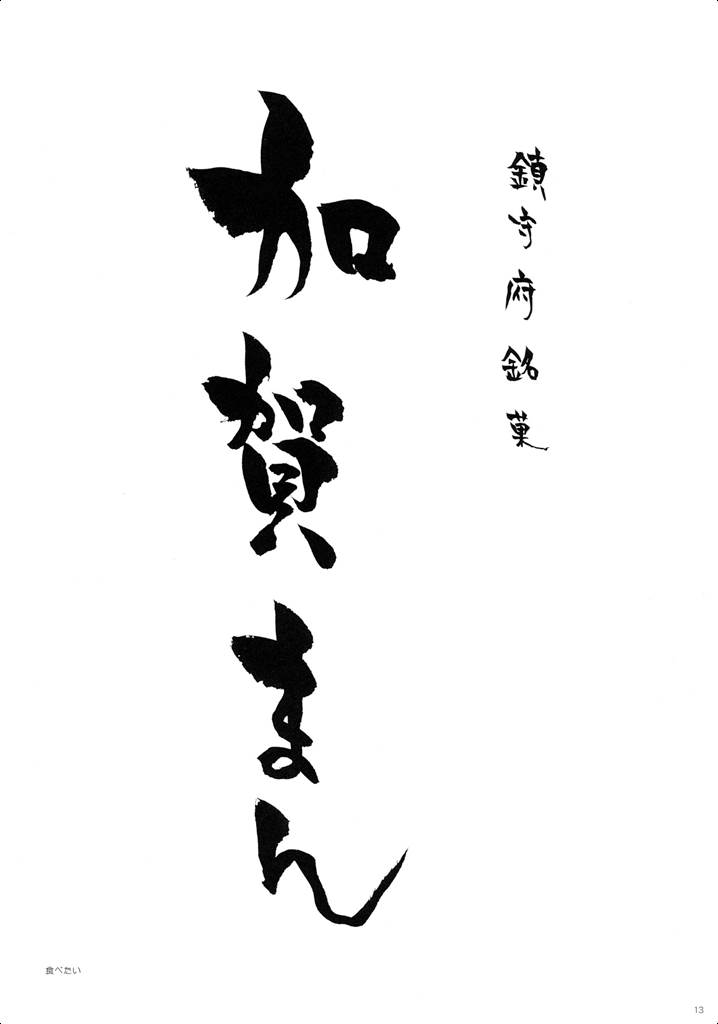 鎮守府銘菓
加賀まん
食べたい
13